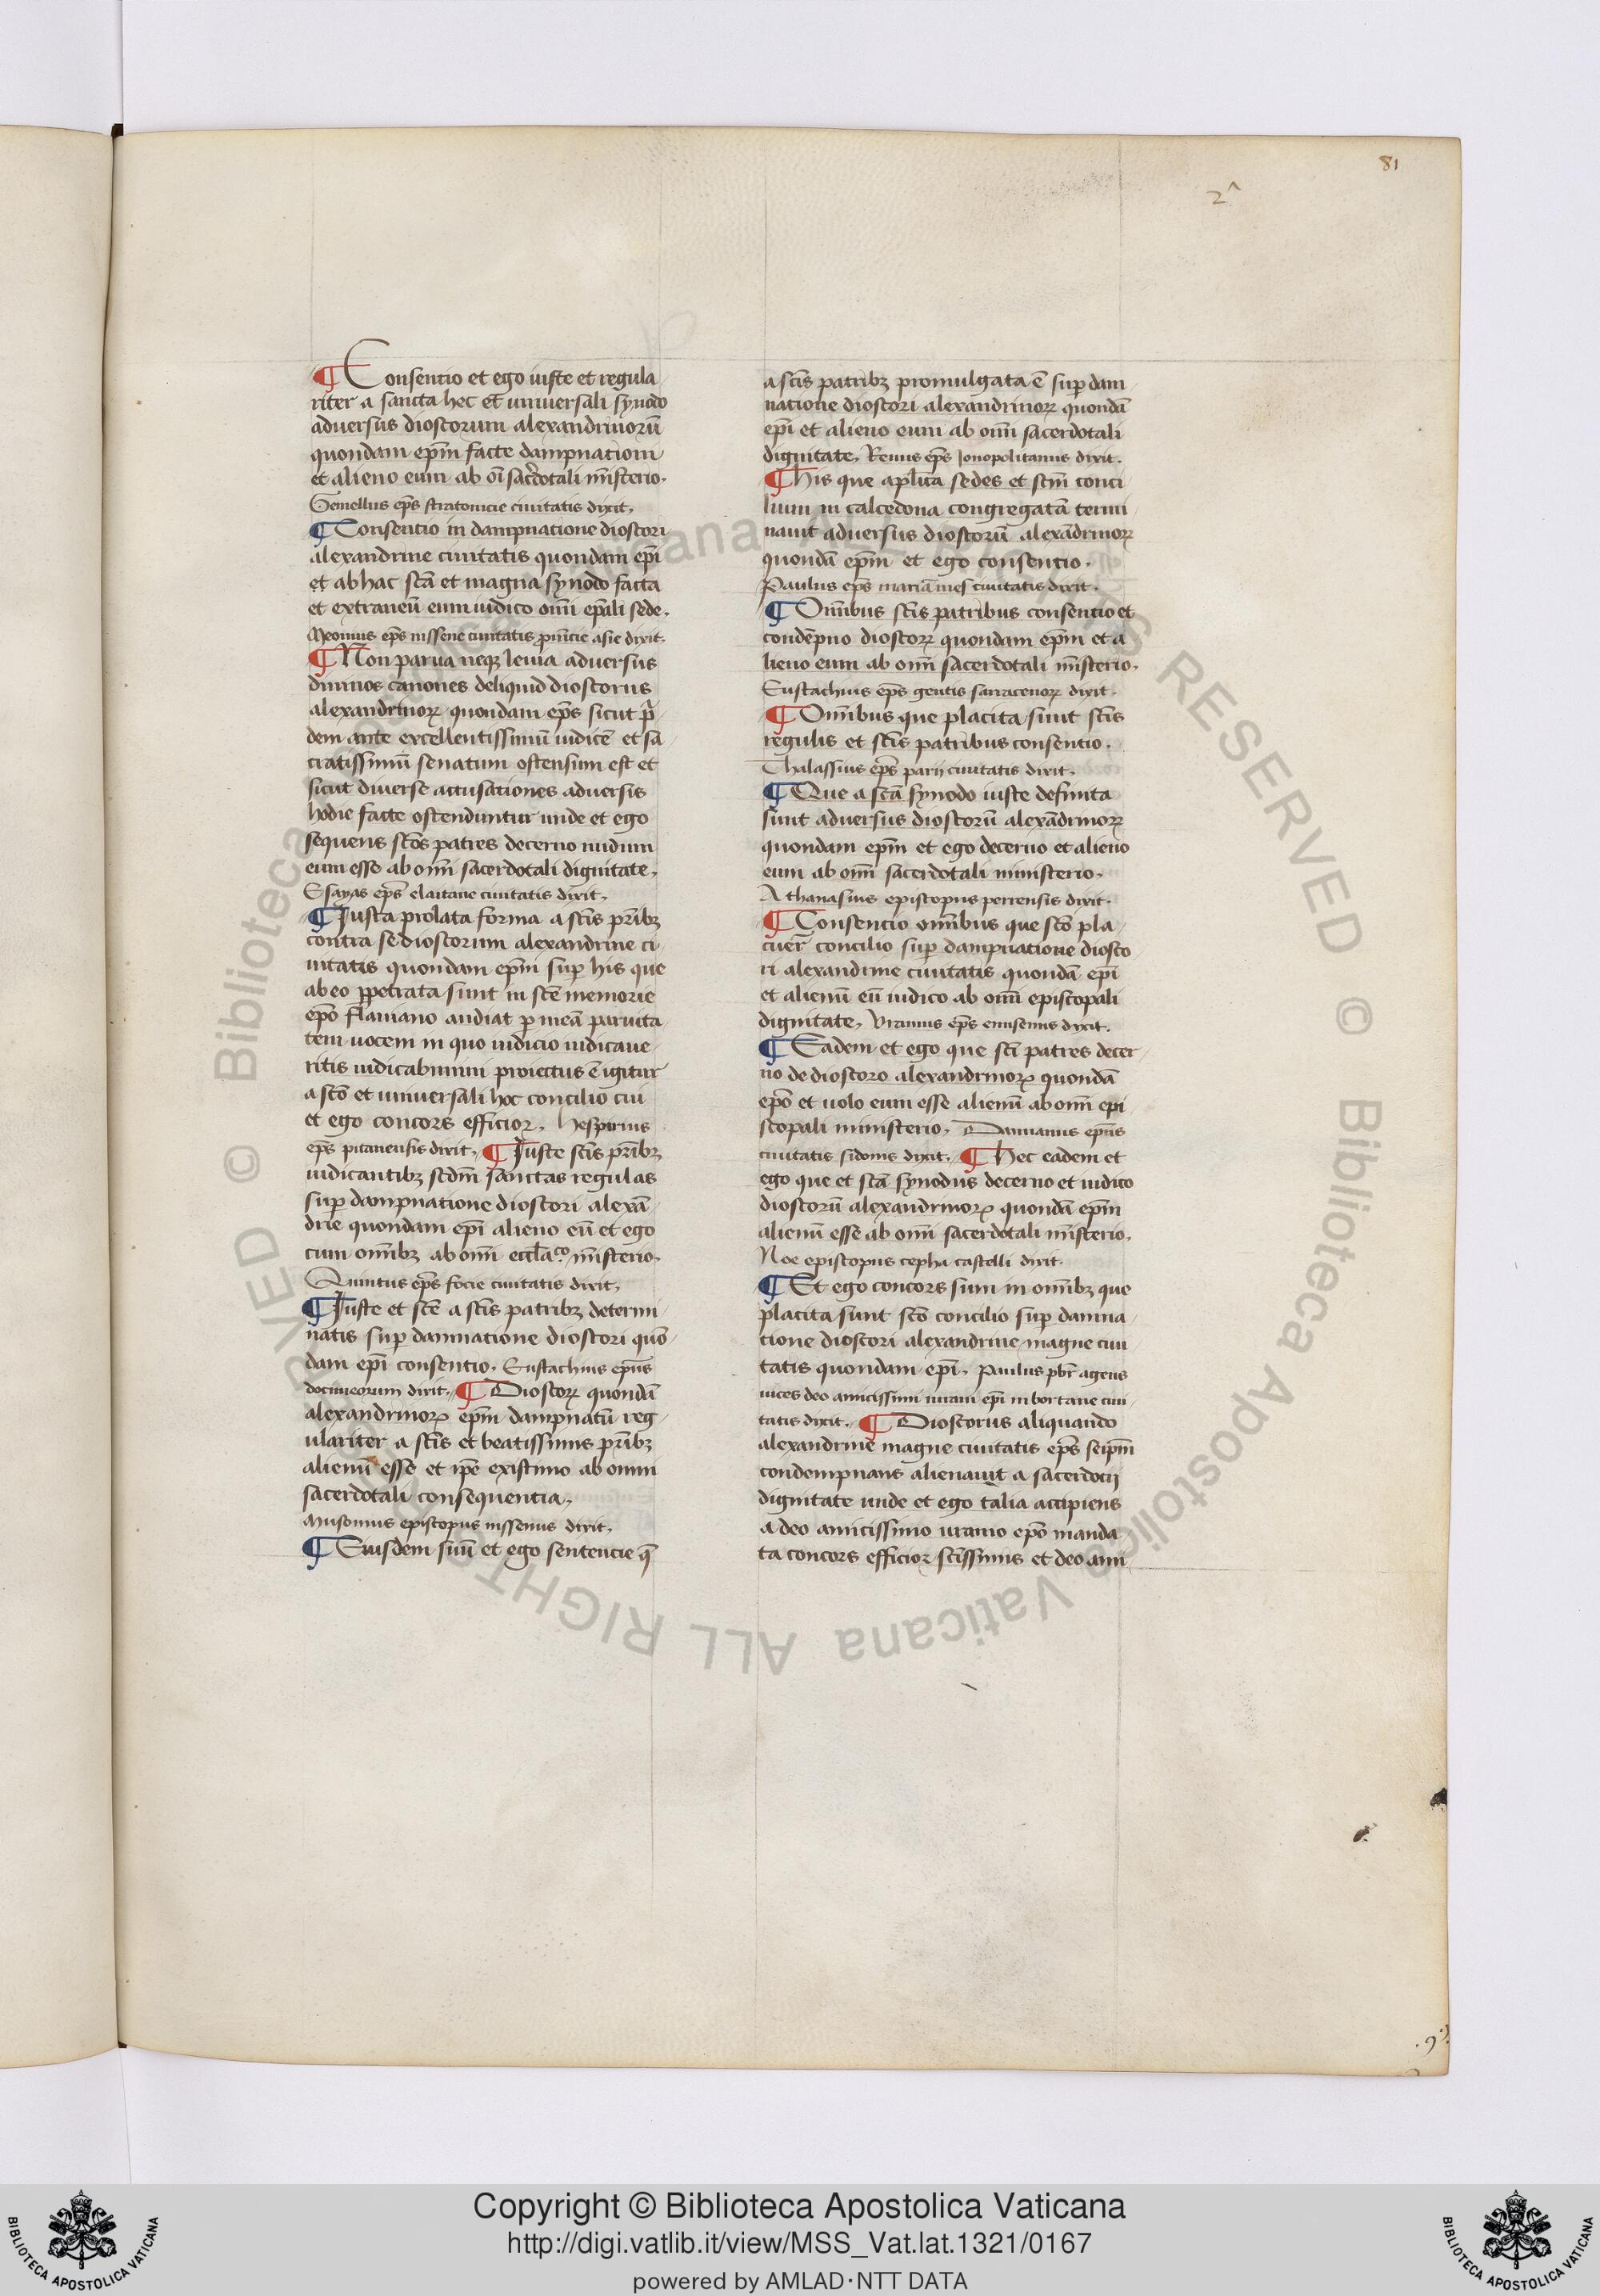 81
2^
¶ Consentio et ego iuste et regula
riter a sancta hec et uniuersali synodo
aduersus dioscorum alexandrinorū
quondam ep̄m facte dampnationi
et alieno eum ab oī sac̄dotali mīsterio.
Gemellus ep̄s stratonicie ciuitatis dixit.
¶ Consentio in dampnatione dioscori
alexandrine ciuitatis quondam ep̄i
et ab hac sc̄a et magna synodo facta
et extraneū eum iudico om̄i ep̄ali sede.
Meonius ep̄s nissene ciuitatis prouīcie asie dixit.
¶ Non parua neqȝ leuia aduersus
diuinos canones deliquid dioscorus
alexandrinoꝝ quondam ep̄s sicut pri
dem ante excellentissimū iudicē et sa
cratissimū senatum ostensum est et
sicut diuerse accusationes aduersis
hodie facte ostenduntur unde et ego
sequens sc̄os patres decerno nudum
eum esse ab om̄i sacerdotali dignitate.
Esayas ep̄s elaitane ciuitatis dixit.
¶ Iusta prolata forma a sc̄is pr̄ibȝ
contra se dioscorum alexandrine ci
uitatis quondam ep̄m sup̱ his que
ab eo ꝑpetrata sunt in sc̄e memorie
ep̄o flauiano audiat ꝑ meā paruita
tem uocem in quo iudicio iudicaue
ritis iudicabimini proiectus ē igitur
a sc̄o et uniuersali hoc concilio cui
et ego concors efficior. Hesperius
ep̄s pitanensis dixit. ¶ Iuste sc̄is pr̄ibȝ
iudicantibȝ sc̄dm sanctas regulas
sup̱ dampnatione dioscori alexā
drie quondam ep̄i alieno eū et ego
cum om̄ibȝ ab om̄i eccl̄aco mīsterio.
Quintus ep̄s focie ciuitatis dixit.
¶ Iuste et sc̄e a sc̄is patribȝ determi
natis sup̱ damnatione dioscori quō
dam ep̄i consentio. Eustachius ep̄us
docimeorum dixit. ¶ Dioscoꝝ quondā
alexandrinoꝝ ep̄m dampnatū reg
ulariter a sc̄is et beatissimis pr̄ibȝ
alienū esse et ip̄e existimo ab omni
sacerdotali consequentia.
Musonius episcopus nissenus dixit.
¶ Eiusdem sum et ego sentencie q̄
a sc̄is patribȝ promulgata ē sup̱ dam
natione dioscori alexandrinoꝝ quondā
ep̄i et alieno eum ab om̄i sacerdotali
dignitate. Renus ep̄s Ionopolitanus dixit.
¶ His que ap̄lica sedes et sc̄m conci
lium in calcedona congregatā termi
nauit aduersus dioscorū alexādrinoꝝ
quondā ep̄m et ego consentio.
Paulus ep̄s mariāmes ciuitatis dixit.
¶ Om̄ibus sc̄is patribus consentio et
condēpno dioscoꝝ quondam ep̄m et a
lieno eum ab om̄i sacerdotali mīsterio.
Eustachius ep̄s gentis sarracenoꝝ dixit.
¶ Om̄ibus que placita sunt sc̄is
regulis et sc̄is patribus consentio.
Thalassius ep̄s parij ciuitatis dixit.
¶ Que a sc̄a synodo iuste definita
sunt aduersus dioscorū alexādrinoꝝ
quondam ep̄m et ego decerno et alieno
eum ab om̄i sacerdotali ministerio.
Athanasius episcopus perrensis dixit.
¶ Consencio om̄ibus que sc̄o pla
cuer̄ concilio sup̱ dampnatione diosco
ri alexandrine ciuitatis quondā ep̄i
et alienū eū iudico ab om̄i episcopali
dignitate. Uranius ep̄s emisenus dixit.
¶ Eadem et ego que sc̄i patres decer
no de dioscoro alexandrinoꝝ quondā
ep̄o et uolo eum esse alienū ab om̄i epi
scopali ministerio. Damianus ep̄us
ciuitatis sidonis dixit. ¶ Hec eadem et
ego que et sc̄a synodus decerno et iudico
dioscorū alexandrinoꝝ quondā ep̄m
alienū esse ab om̄i sacerdotali mīsterio.
Noe episcopus cepha castelli dixit.
¶ Et ego concors sum in om̄ibȝ que
placita sunt sc̄o concilio sup̱ damna
tione dioscori alexandrine magne ciui
tatis quondam ep̄i. Paulus pb̄r agens
uices deo amicissimi urani ep̄i in bortane ciui
tatis dixit. ¶ Dioscorus aliquando
alexandrine magne ciuitatis ep̄s seip̄m
condempnans alienauit a sacerdotij
dignitate unde et ego talia accipiens
a deo amicissimo uranio ep̄o manda
ta concors efficior sc̄issimis et deo ami
Copyright © Biblioteca Apostolica Vaticana
http://digi.vatlib.it/view/MSS_Vat.lat.1321/0167
powered by AMLAD·NTT DATA